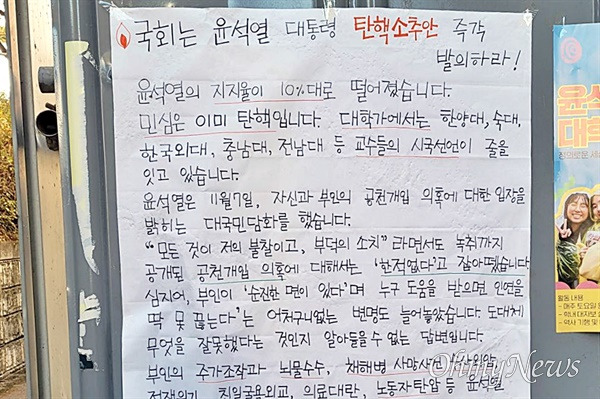 국회는 윤석열 대통령 탄핵소추안 즉각
발의하라!
윤석열의 지지율이 10%대로 떨어졌습니다.
민심은 이미 탄핵입니다. 대학가에서는 한양대, 숙대,
한국외대, 충남대, 전남대 등 교수들의 시국선언이 줄을
잇고 있습니다.
윤석열은 11월7일, 자신과 부인의 공천개입 의혹에 대한 입장을
밝히는 대국민담화를 했습니다.
"모든 것이 저의 불찰이고, 부덕의 소치" 라면서도 녹취까지
공개된 공천개입 의혹에 대해서는 '한적없다'고 잡아뗐습니다
심지어, 부인이 '순진한 면이 있다'며 누구 도움을 받으면 인연을
딱 못 끊는다'는 어처구니없는 변명도 늘어놓았습니다 도대체
무엇을 잘못했다는 것인지 알아들을 수 없는 답변입니다.
부인의 주가조작과 뇌물수수, 채해병 사망사건
전쟁위기, 친일굴욕외교, 의료대란, 노동자탄압 등 윤석열
OhmyNews
윤석
대학
활동 내용
매주 토요일
학내 대자보
역사 기행 및